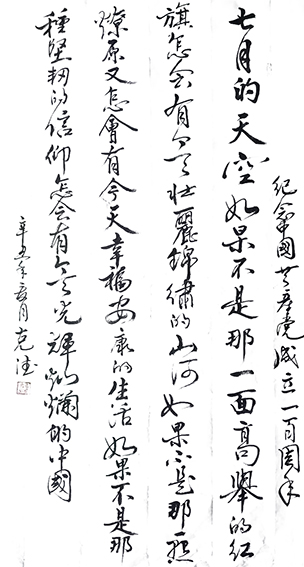 紀念中國共産党成立一百周年
七月的天空如果不是那一面高舉的红
旗怎会有今天壮麗錦繡的山河如果不是那
燎原又怎會有今天幸福安康的生活如果不是那
種堅韧的信仰怎会有今天光輝灿爛的中國
辛丑年月克